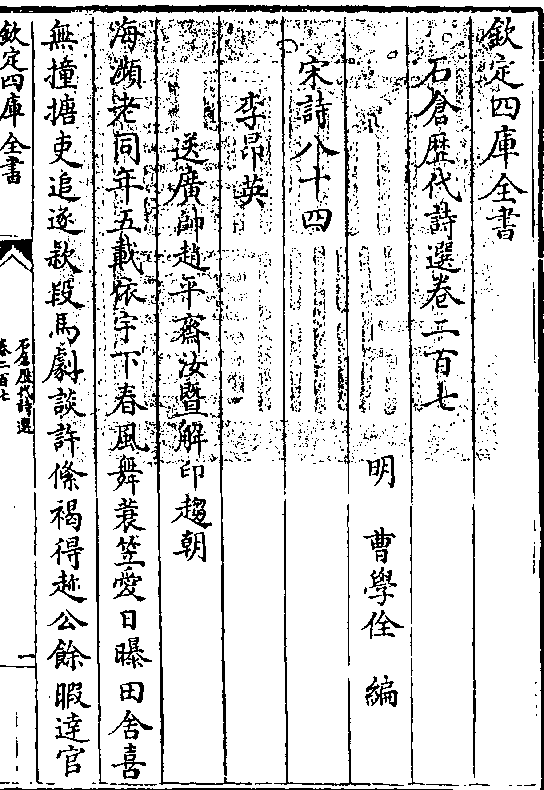 欽定四庫全書
石倉歷代詩選卷二百七
明 曹學佺 編
宋詩八十四
李昂英
送廣帥趙平齋汝暨解印趨朝
海瀕老同年五載依宇下春風舞蓑笠愛日曝田舍喜
無撞搪吏追逐欵段馬劇談許絛褐得趂公餘暇逹官
欽定四庫全書
石倉歷代詩選
卷二百七
一